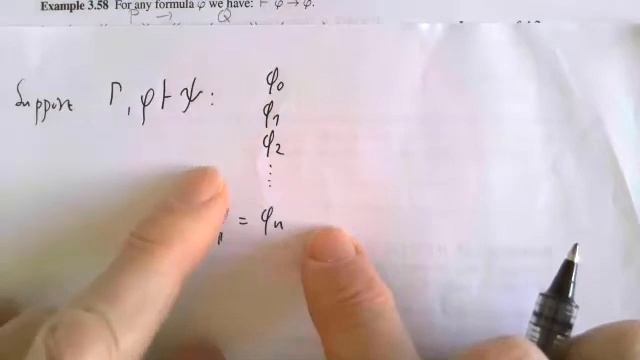 Example 3.58 For any formula φ we have: ⊢ φ → φ.
P → Q
Suppose Γ, φ ⊢ ψ : φ₀
φ₁
φ₂
⋮
= φₙ